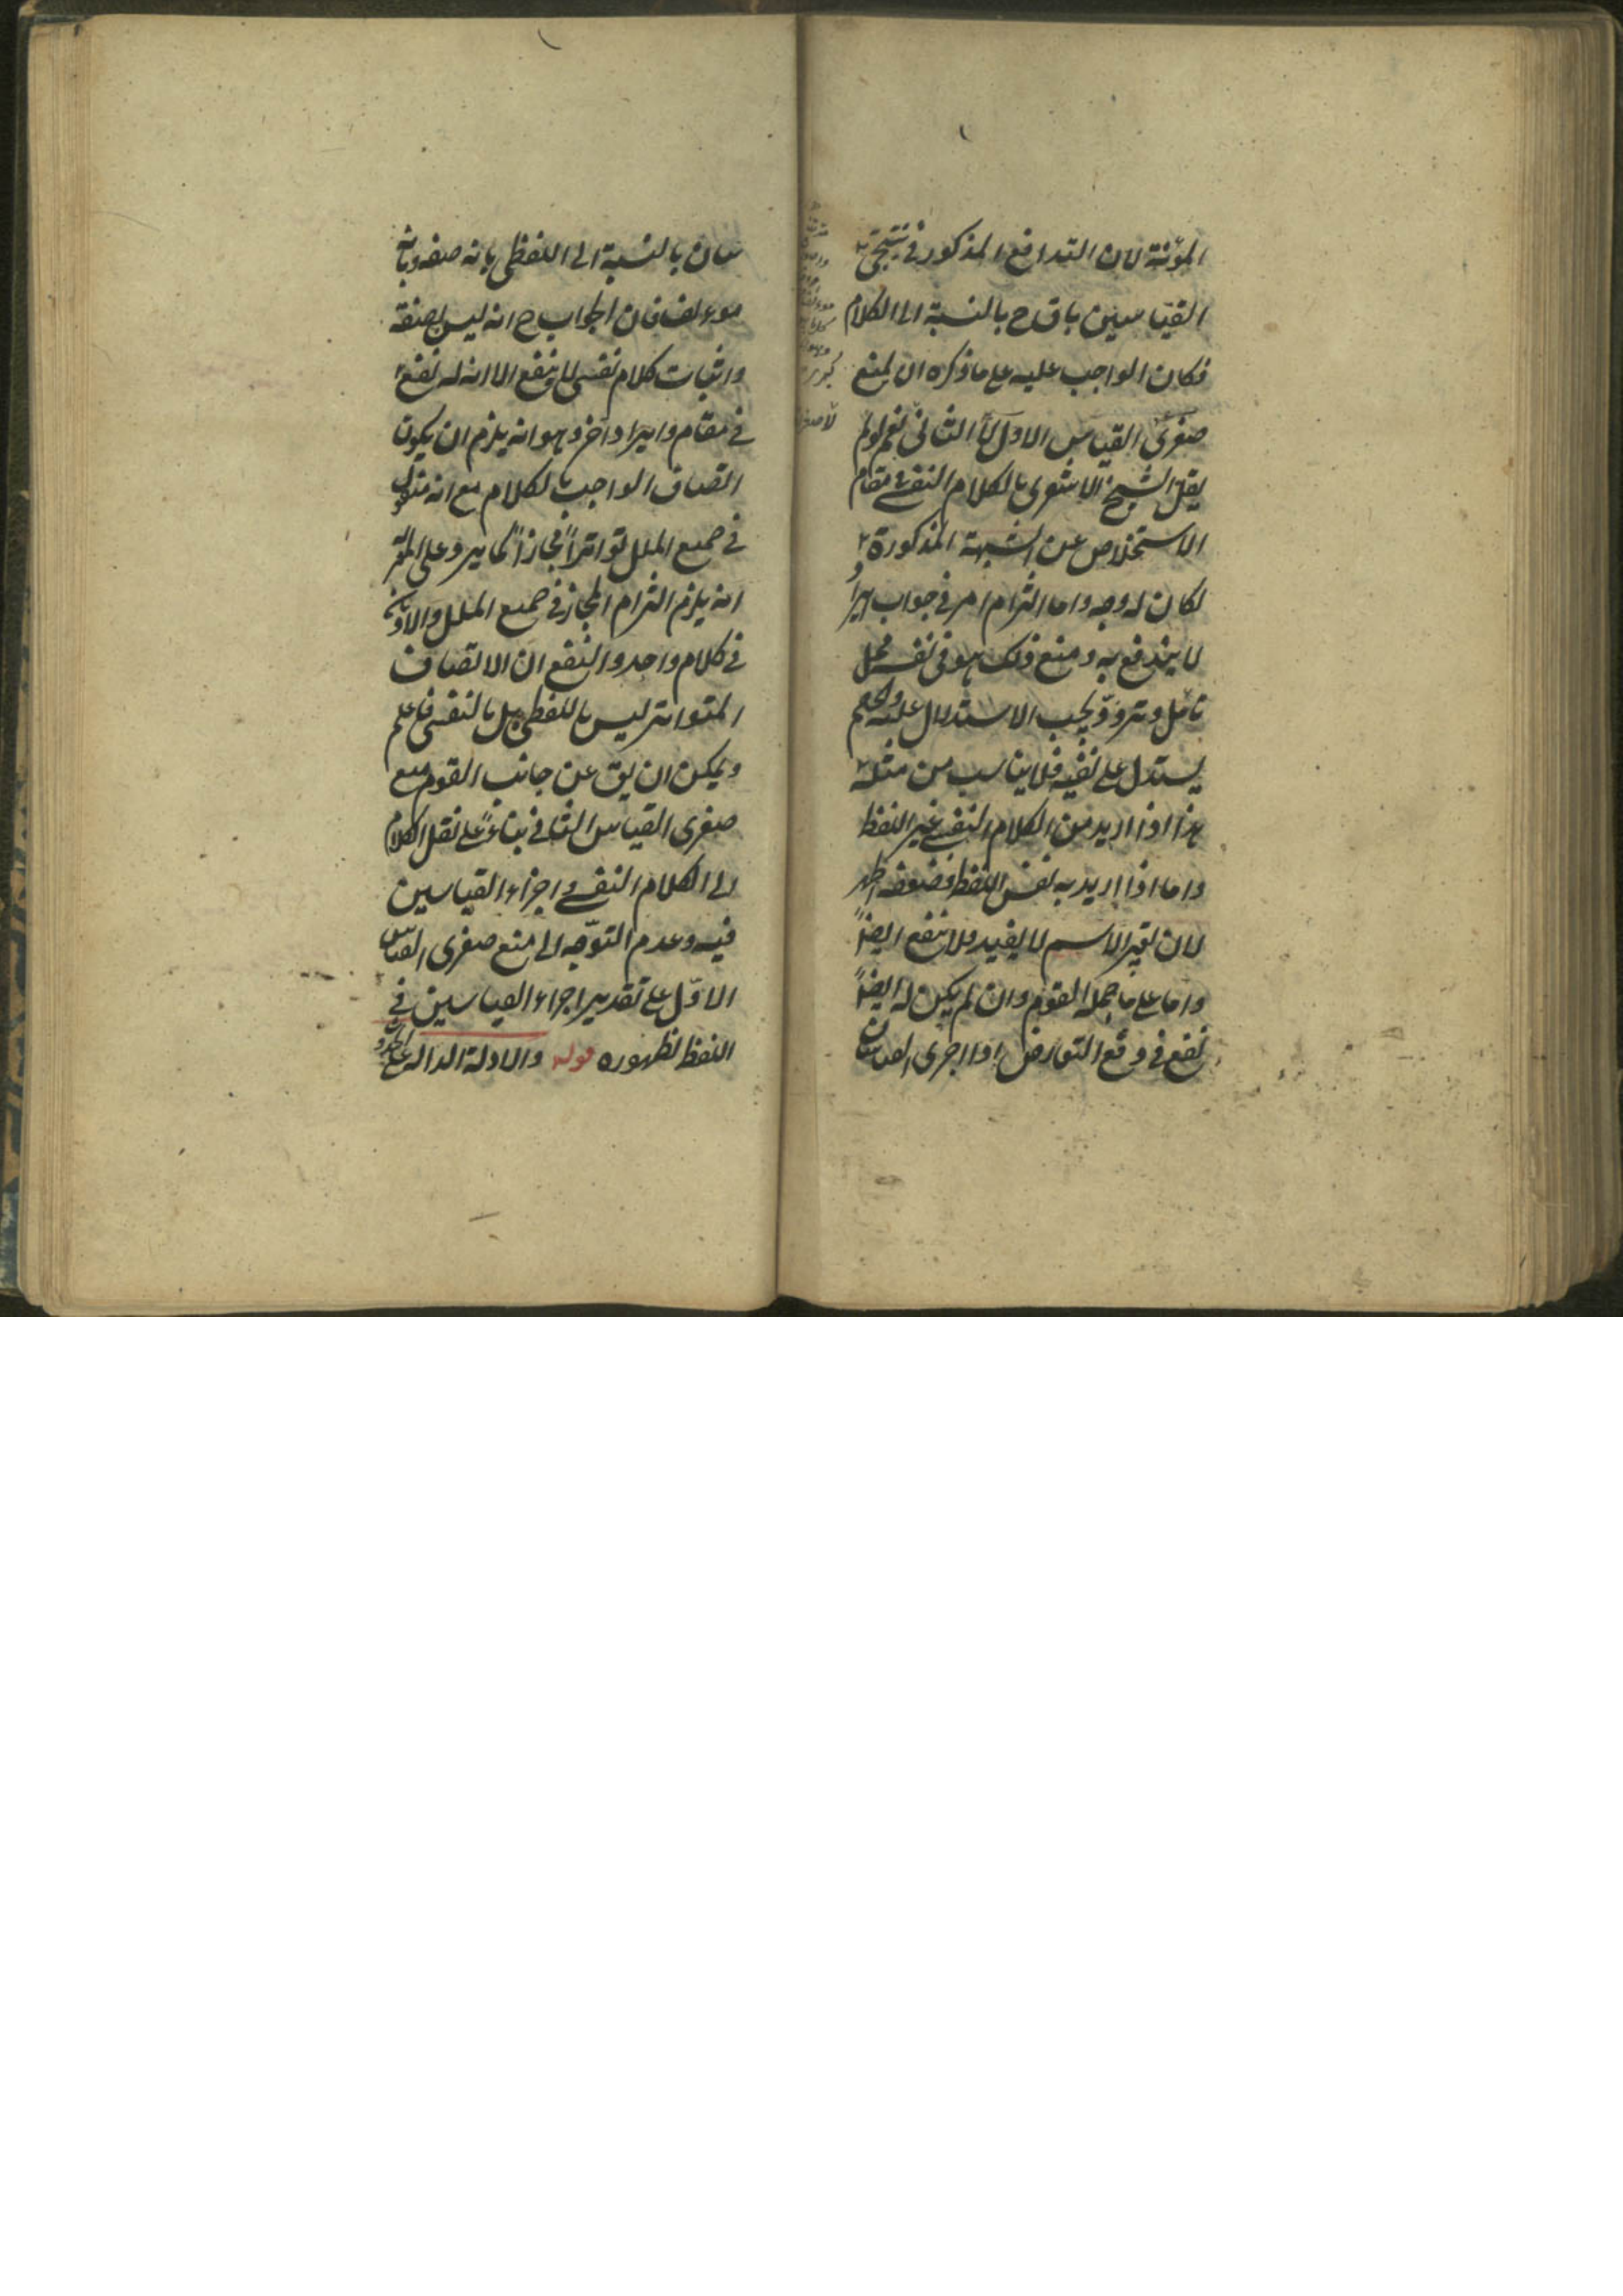 المؤنة لان التدافع المذكور في نتيجتي
القياسين باق ح بالنسبة الى الكلام
فكان الواجب عليه على ما ذكره ان يمنع
صغرى القياس الاول لا الثاني نعم لو لم
يقل الشيخ الاشعري بالكلام النفسي في مقام
الاستخلاص عن الشبهة المذكورة
لكان له وجه واما التزام امر في جواب ايراد
لا يندفع به ومنع ذلك هو في نفسه محل
تامل وتردد ويجب الاستدلال عليه ولم
يستدل على نفيه فلا يناسب من مثله
هذا اذا اريد من الكلام النفسي غير اللفظ
واما اذا اريد به نفس اللفظ فضعفه اظهر
لان تغير الاسم لا يفيد ولا ينفع ايضاً
واما على ما حمله القوم وان لم يكن له ايضاً
نفع في دفع التعارض اذا اجرى القياسان
سان بالنسبة الى اللفظي بانه صفة وبانه
موءلف فان الجواب ح انه ليس بصفة
واثبات كلام نفسي لا ينفع الا انه له نفع
في مقام وايراد اخر وهو انه يلزم ان يكون
اتصاف الواجب بالكلام مع انه منقول
في جميع الملل تواتراً مجازاً كما يرد على المعتزلة
انه يلزم التزام المجاز في جميع الملل والاديان
في كلام واحد والنفع ان الاتصاف
المتواتر ليس باللفظي بل بالنفسي فاعلم
ويمكن ان يق عن جانب القوم منع
صغرى القياس الثاني بناءً على نقل الكلام
الى الكلام النفسي واجراء القياسين
فيه وعدم التوجّه الى منع صغرى القياس
الاوّل على تقدير اجراء القياسين في
اللفظ لظهوره قوله والادلة الدالة على الحدوث